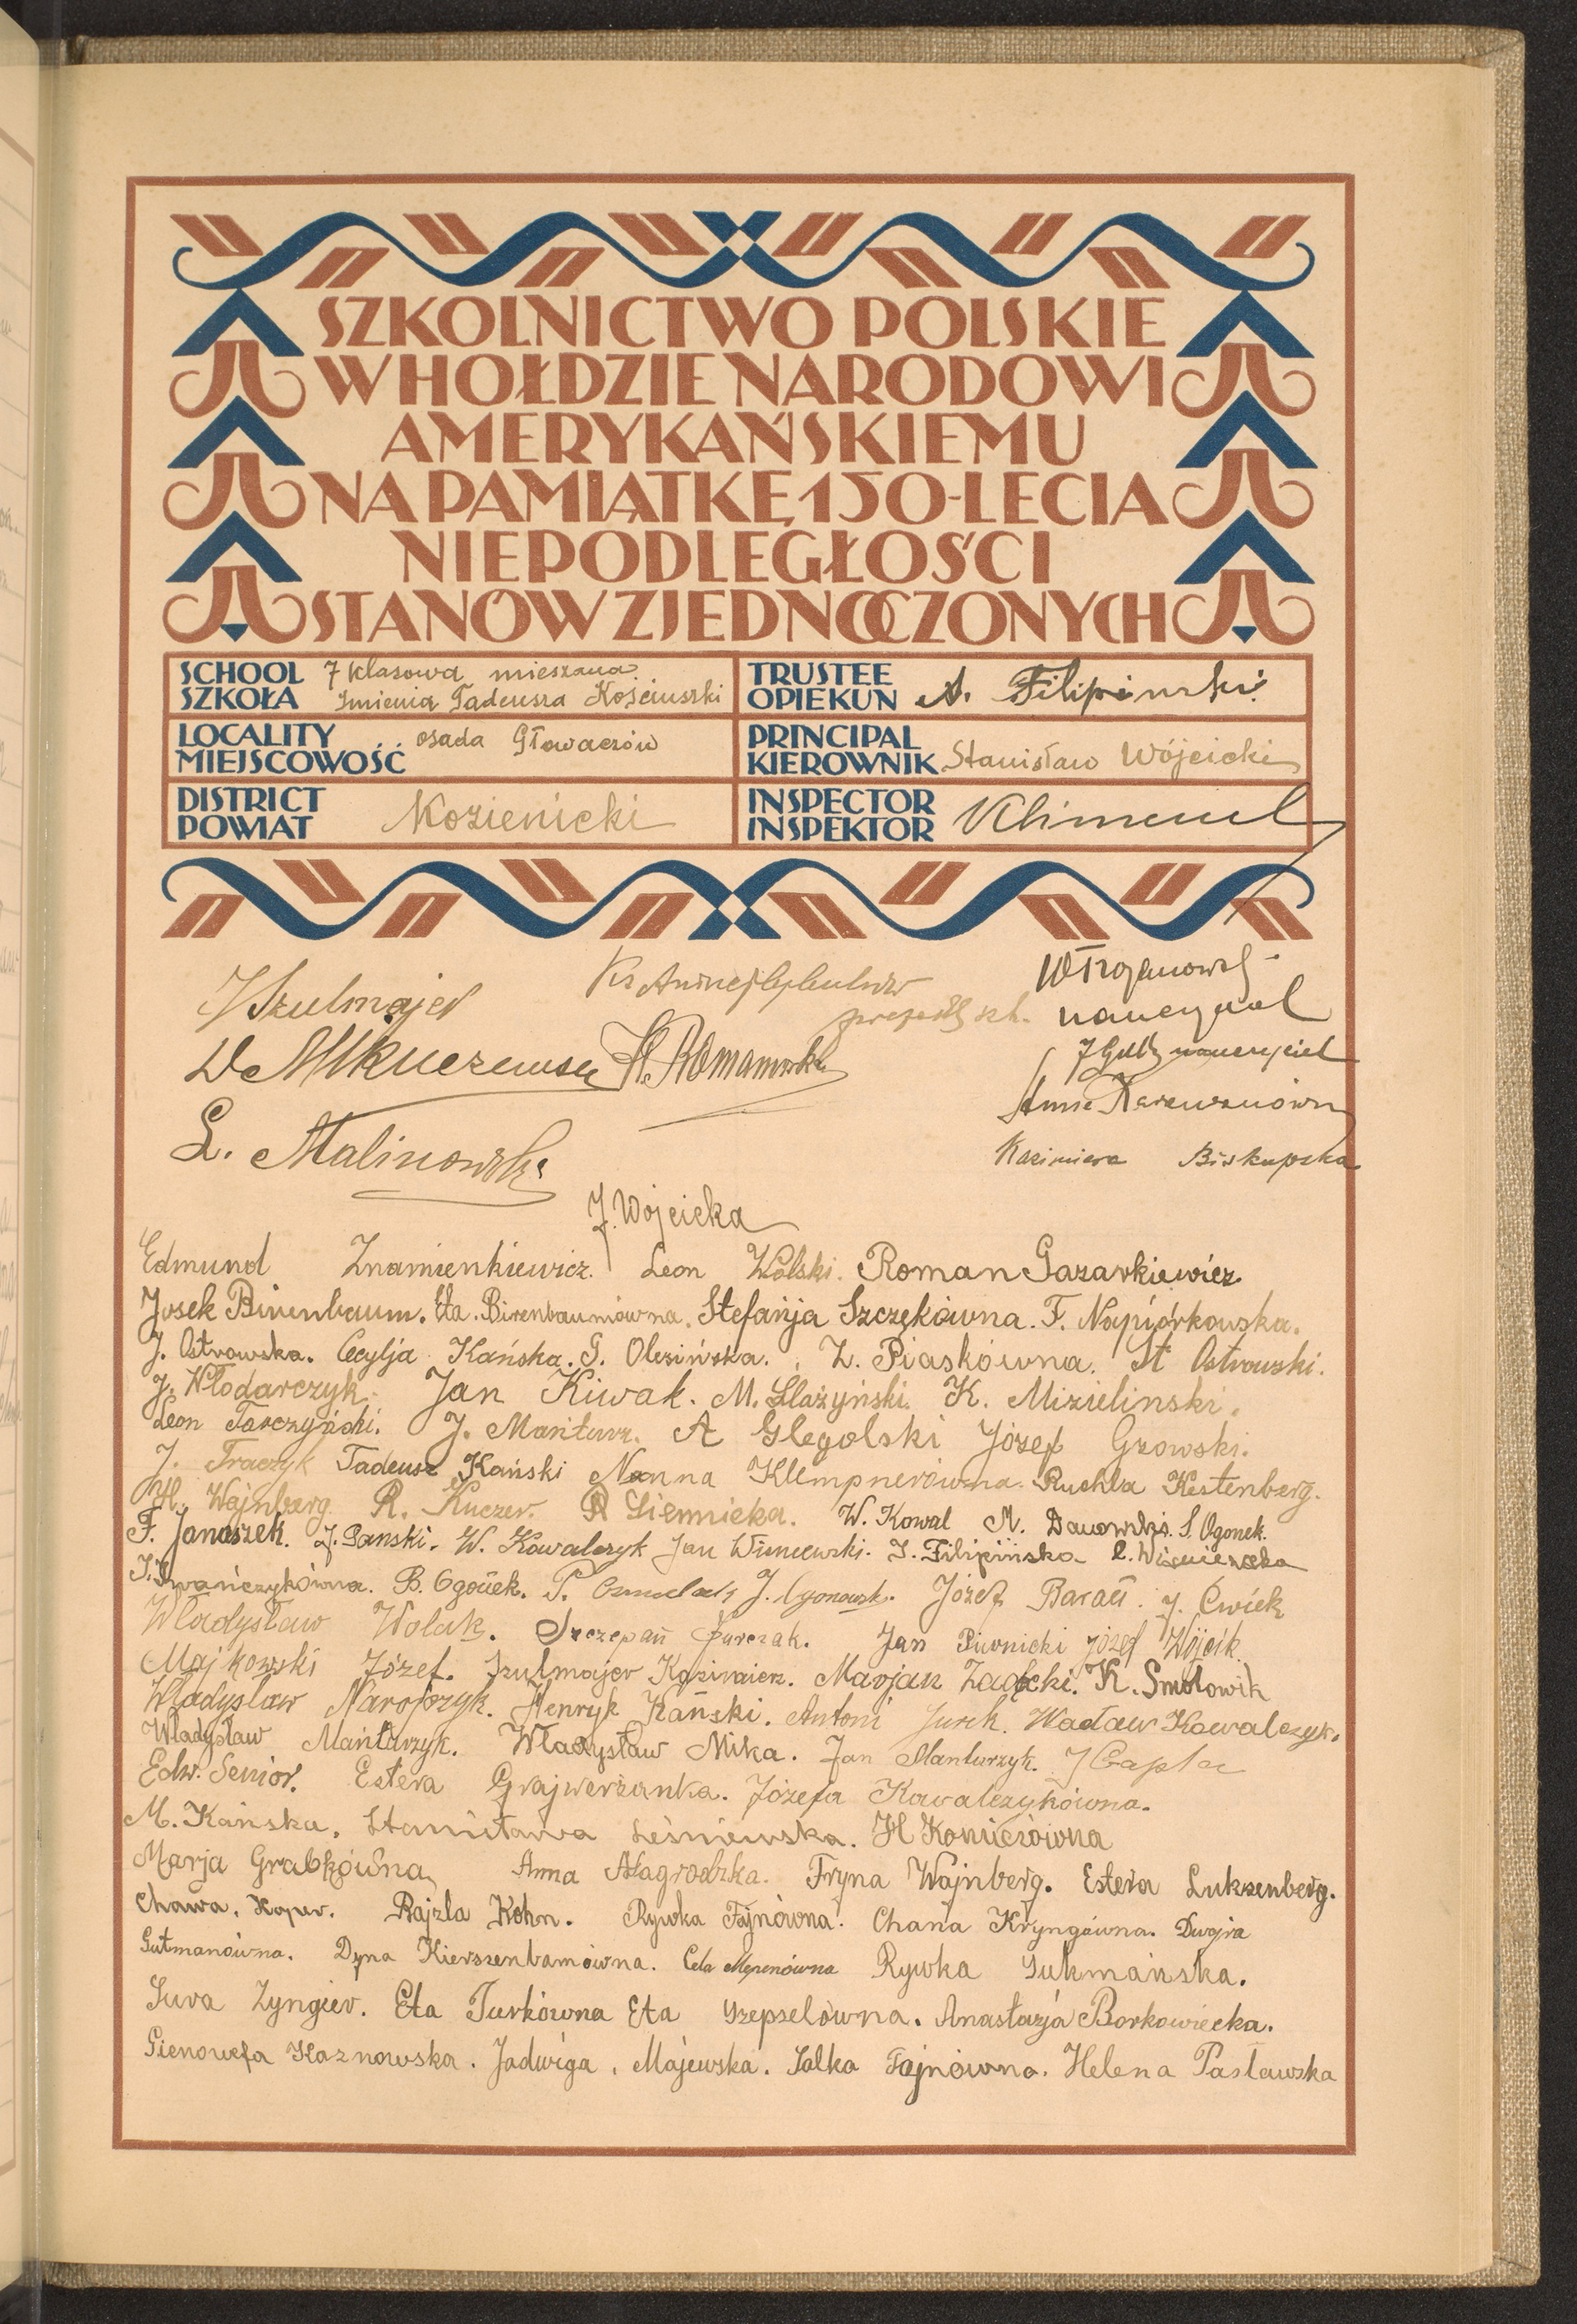 SZKOLNICTWO POLSKIE
W HOŁDZIE NARODOWI
AMERYKAŃSKIEMU
NA PAMIĄTKĘ 150-LECIA
NIEPODLEGŁOŚCI
STANÓW ZJEDNOCZONYCH
SCHOOL
SZKOŁA
7 klasowa mieszana
Imienia Tadeusza Kościuszki
TRUSTEE
OPIEKUN
A. Filipiński
LOCALITY
MIEJSCOWOŚĆ
osada Głowaczów
PRINCIPAL
KIEROWNIK
Stanisław Wójcicki
DISTRICT
POWIAT
Kozienicki
INSPECTOR
INSPEKTOR
J Szulmajer
H. Romanowska
nauczyciel
L. Malinowska
Kazimiera Biskupska
J. Wójcicka
Edmund Znamienkiewicz. Leon Wolski. Roman Gazarkiewicz.
Josek Birenbaum. Eta. Birenbaumówna. Stefanja Szczękówna. F. Napiórkowska.
J. Ostrowska. Cecylja Kańska. G. Olesińska. Z. Piaskówna. St Ostrowski.
J. Włodarczyk. Jan Kiwak. M. Ślażyński. K. Mizielinski.
Leon Tarczyński. J. Mantur. A Glegolski Józef Gzowski.
J. Traczyk Tadeusz Kański Nanna Klempnerówna. Ruchla Kestenberg.
H. Wajnberg. R. Kuczer. R Siennicka. W. Kowal S. Ogonek.
F. Janaszek. J. Panski. W. Kowalczyk Jan Wisniewski. J. Filipińska
J. Iwańczykówna. B. Ogonek. Józef Baran. J. Ćwiek
Władysław Wolak. Szczepan Jurczak. Jan Piwnicki Józef Wójcik.
Majkowski Józef. Szulmajer Kazimierz. Marjan Zadęcki. K. Smolowik
Władysław Narojczyk. Henryk Kański. Antoni Jurek. Wacław Kowalczyk.
Władysław Mantarzyk. Władysław Mika. Jan Manturzyk. J Capla
Edw. Senior. Estera Grajwerżanka. Józefa Kowalczykówna.
M. Kańska. Stanisława Leśniewska. H Koniczówna
Marja Grabkówna Anna Nagrodzka. Fryna Wajnberg. Estera Luksenberg.
Chawa. Koper. Rajzla Kohn. Rywka Fajnówna. Chana Kryngówna. Dwojra
Gutmanówna. Dyna Kierszenbamówna. Cela Rywka Sukmańska.
Sura Zyngier. Eta Turkówna Eta Szepselówna. Anastazja Borkowiecka.
Gienowefa Kaznowska. Jadwiga. Majewska. Salka Fajnówna. Helena Pasławska